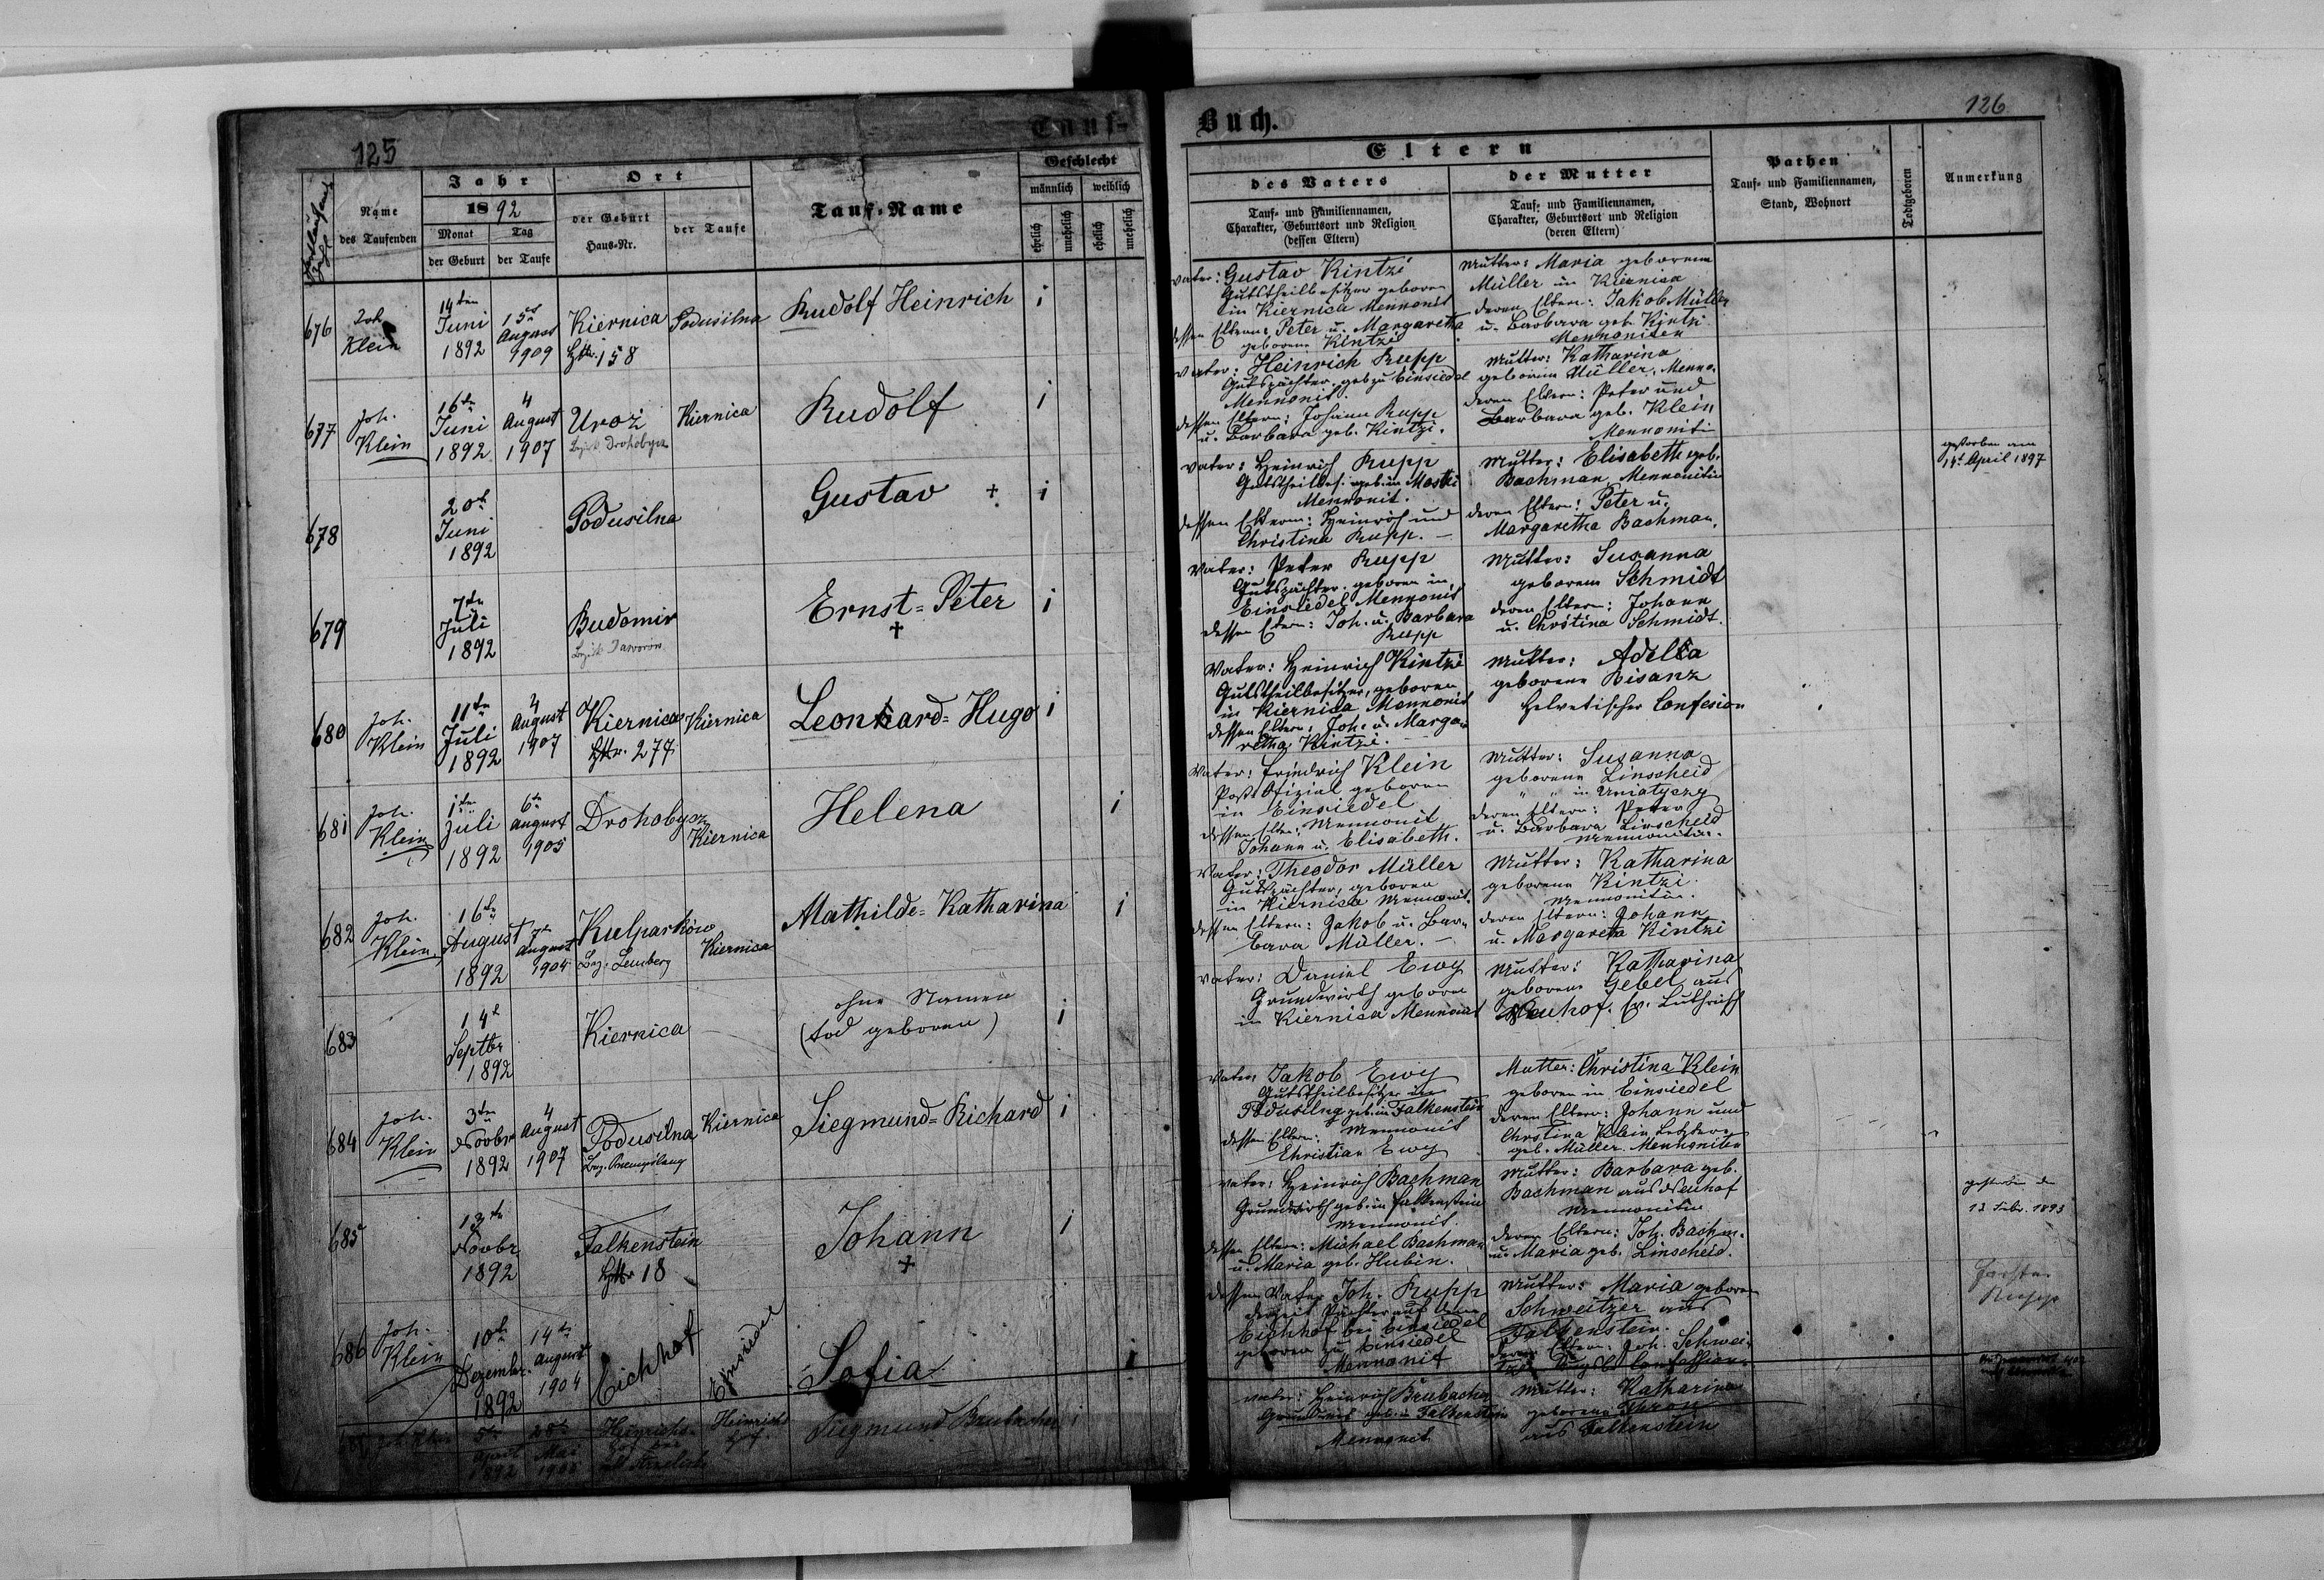 125
Tauf-
Fortlaufende Zahl
Name
des Taufenden
Jahr
1892
Monat
der Geburt
Tag
der Taufe
Ort
der Geburt
Haus-Nr.
der Taufe
Tauf-Name
Geschlecht
männlich
weiblich
ehelich
unehelich
ehelich
unehelich
676
Joh.
Klein
14ten
Juni
1892
15
August
1909
Kiernica
158
Podusilna
Rudolf Heinrich
1
677
Joh.
Klein
16te
Juni
1892
4
August
1907
Uroż
Bezirk Drohobycz
Kiernica
Rudolf
1
678
20t
Juni
1892
Podusilna
Gustav +
1
679
7te
Juli
1892
Budomir
Bezirk Jaworow
Ernst-Peter
+
1
680
Joh.
Klein
11te
Juli
1892
4
August
1907
Kiernica
277
Kiernica
Leonhard-Hugo
1
681
Joh.
Klein
1te
Juli
1892
6te
August
1905
Drohobycz
Kiernica
Helena
1
682
Joh.
Klein
16te
August
1892
7te
August
1904
Kulparków
Bez. Lemberg
Kiernica
Mathilde-Katharina
1
683
14t
Septbr
1892
Kiernica
ohne Namen
(tod geboren)
1
684
Joh.
Klein
3te
Novbr
1892
4
August
1907
Podusilna
Bez. Przemyślany
Kiernica
Siegmund-Richard
1
685
13te
Novbr
1892
Falkenstein
18
Johann
+
1
686
Joh.
Klein
10t
Dezember
1892
14te
August
1904
Eichhof
Einsiedel
Sofia
1
Joh. Klein
5te
April
1892
28te
Mai
1900
Heinrichs-
hof
Heinrichs
hof.
Siegmund Brubacher
1
Buch.
126
Eltern
des Vaters
Tauf- und Familiennamen,
Charakter, Geburtsort und Religion
(dessen Eltern)
der Mutter
Tauf- und Familiennamen,
Charakter, Geburtsort und Religion
(deren Eltern)
Pathen
Tauf- und Familiennamen,
Stand, Wohnort
Todtgeboren
Anmerkung
Vater: Gustav Kintzi
Gutstheilbesitzer geboren
in Kiernica Mennonit
dessen Eltern: Peter u. Margaretha
geborene Kintzi
Mutter: Maria geborene
Müller in Kiernica
deren Eltern: Jakob Müller
u. Barbara geb. Kintzi
Mennoniten
Vater: Heinrich Rupp
Gutspächter, geb. zu Einsiedel
Mennonit.
dessen Eltern: Johann Rupp
u. Barbara geb. Kintzi.
Mutter: Katharina
geborene Müller, Menno.
deren Eltern: Peter und
Barbara geb. Klein
Mennoniti
Vater: Heinrich Rupp
Gutstheilbes. geb. in Mostki
Mennonit.
dessen Eltern: Heinrich und
Christina Rupp. -
Mutter: Elisabeth geb.
Bachman, Mennonitin
deren Eltern: Peter u.
Margaretha Bachman.
gestorben am
14t April 1897
Vater: Peter Rupp
Gutspächter, geboren in
Einsiedel Mennonit
dessen Eltern: Joh. u. Barbara
Rupp
Mutter: Susanna
geborene Schmidt
deren Eltern: Johann
u. Christina Schmidt.
Vater: Heinrich Kintzi
Gutstheilbesitzer, geboren
in Kiernica Mennonit
dessen Eltern: Joh. u. Marga-
retha Kintzi.
Mutter: Adella
geborene Bisanz
Helvetischer Confesion
Vater: Friedrich Klein
Post Ofizial geboren
in Einsiedel
dessen Eltern: Mennonit
Johann u. Elisabeth.
Mutter: Susanna
geborene Linscheid
" " in Uniatyczy
deren Eltern: Peter
u. Barbara Linscheid
Mennoniten.
Vater: Theodor Müller
Gutspächter, geboren
in Kiernica Mennonit.
dessen Eltern: Jakob u. Bar-
bara Müller. -
Mutter: Katharina
geborene Kintzi.
Mennonitin.
deren Eltern: Johann
u. Margareta Kintzi
Vater: Daniel Ewy
Grundwirth geboren
in Kiernica Mennonit
Mutter: Katharina
geborene Gebel aus
Neuhof, Ev. Luthrisch
Vater: Jakob Ewy
Gutstheilbesitzer in
Podusilna geb. in Falkenstein
dessen Eltern: Mennonit
Christian Ewy
Mutter: Christina Klein
geboren in Einsiedel
deren Eltern: Johann und
Christina Klein Letztere
geb. Müller. Mennoniten
Vater: Heinrich Bachman
Grundwirth geb. in Falkenstein
Mennonit.
dessen Eltern: Michael Bachman
u. Maria geb. Hubin.
Mutter: Barbara geb.
Bachman aus Neuhof
Mennonitin
deren Eltern: Joh. Bachm.
u. Maria geb. Linscheid.
gestorben de
12 Febr. 1893
dessen Vater Joh. Rupp
derzeit Pächter auf dem
Eichhof bei Einsiedel
geboren zu Einsiedel
Mennonit
Mutter: Maria geboren
Schweitzer aus
Falkenstein.
deren Eltern: Joh. Schwei-
tzer Augsb. Confession.
Rupp
Vater: Heinrich Brubacher
Grundwirth geb. in Falkenstein
Mennonit
Mutter: Katharina
geborene
aus Falkenstein